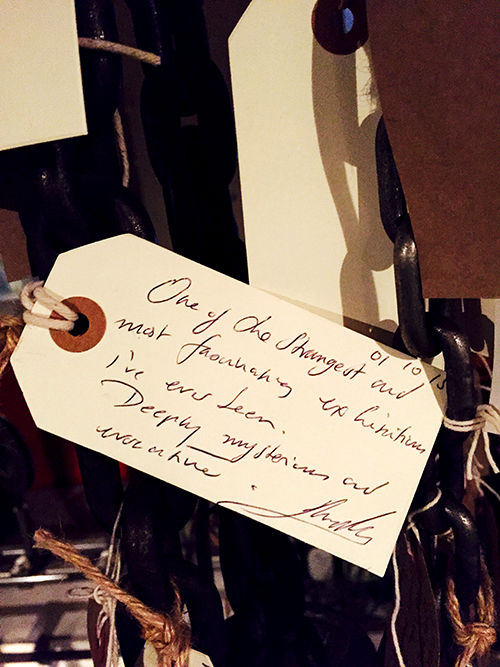 01 10 15
One of the strangest and
most fascinating exhibitions
I've ever seen.
Deeply mysterious and
evocative.